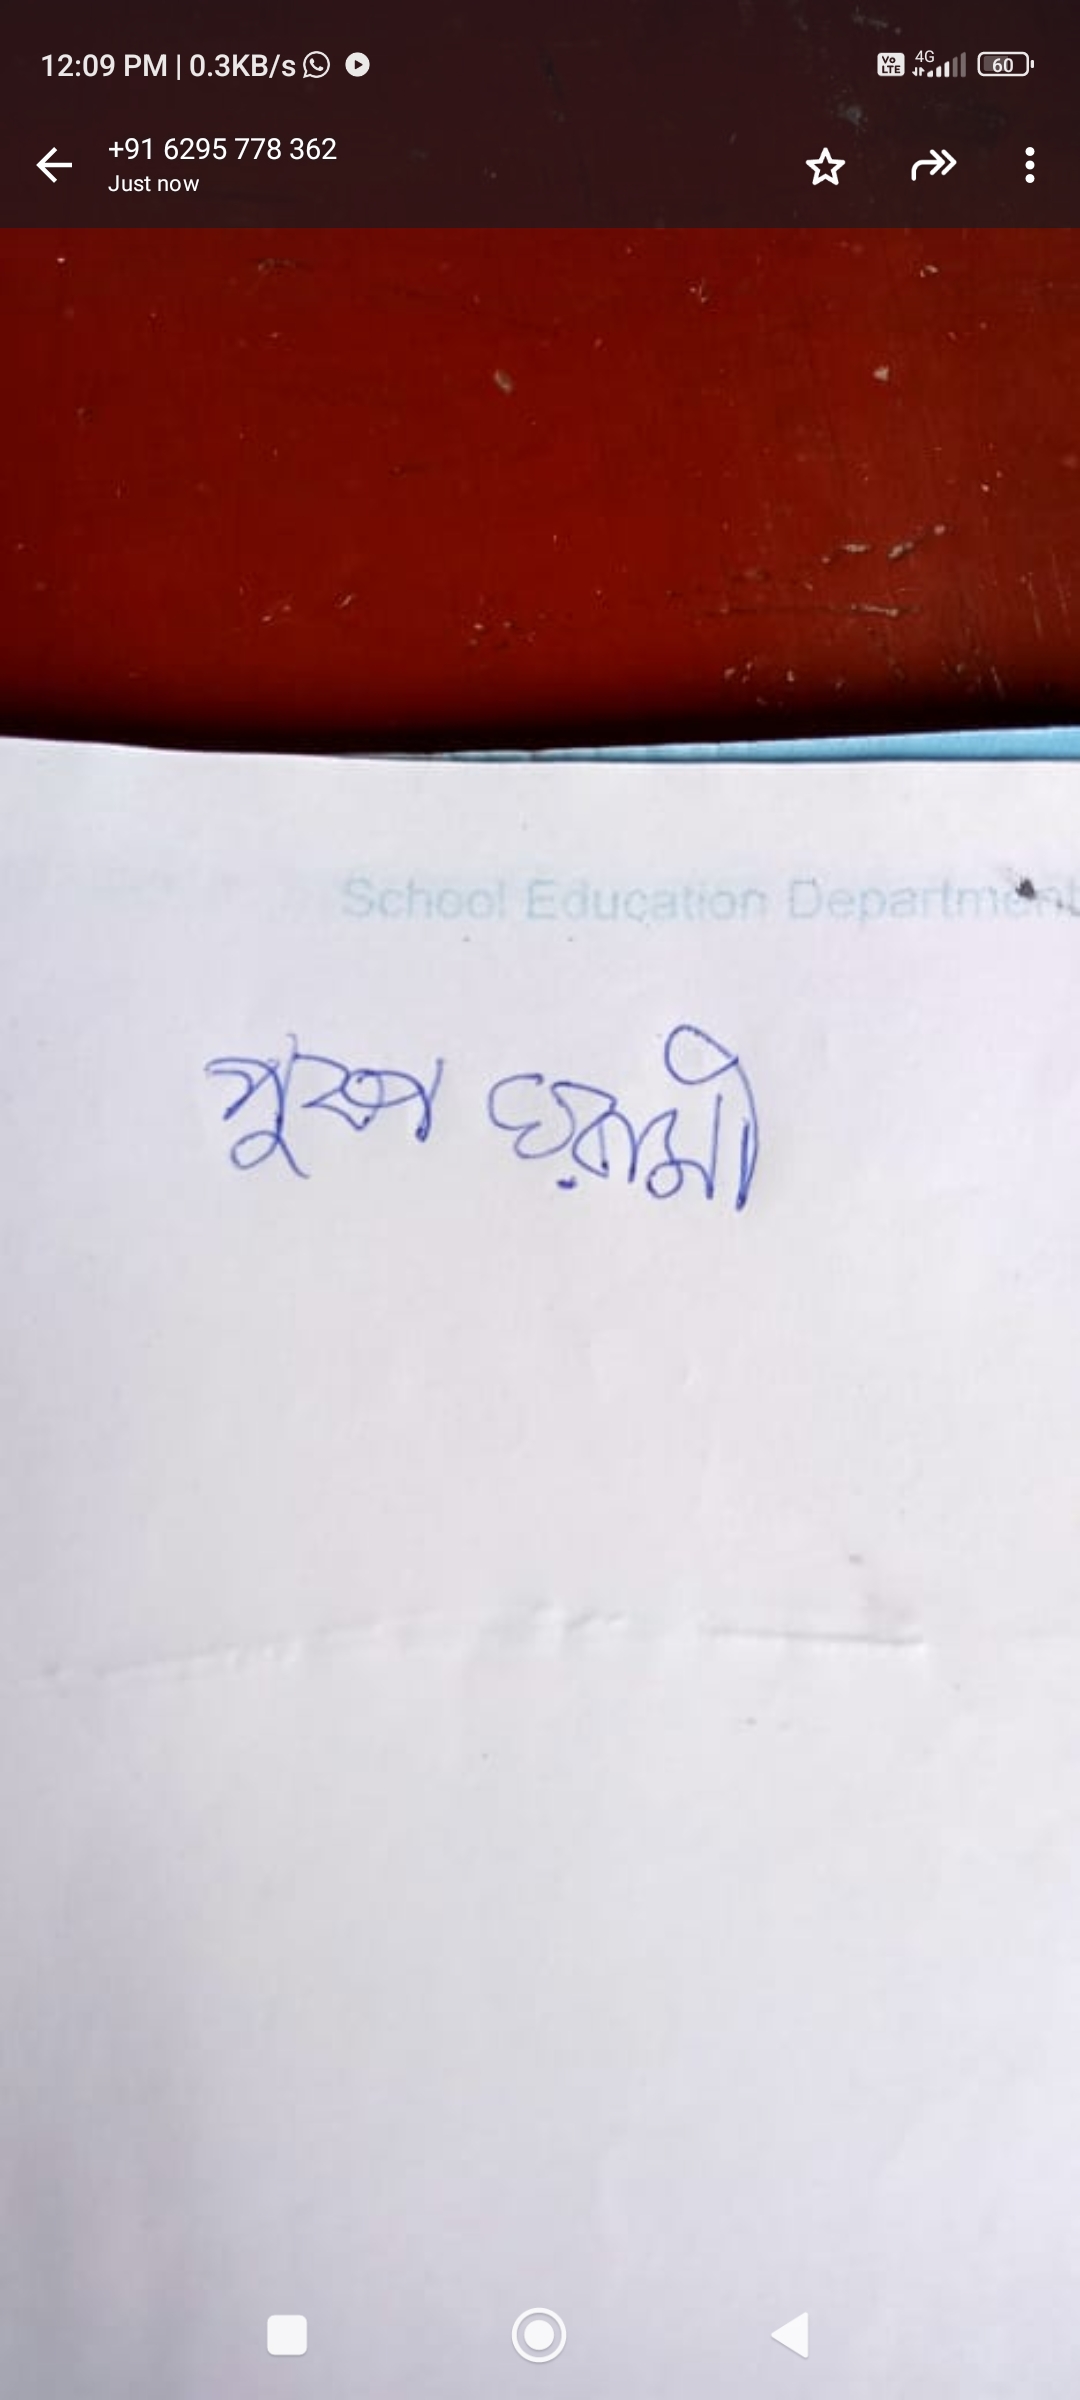 12:09 PM | 0.3KB/s
Vo LTE 4G 60
+91 6295 778 362
Just now
School Education Department
পুষ্প ঘরামী